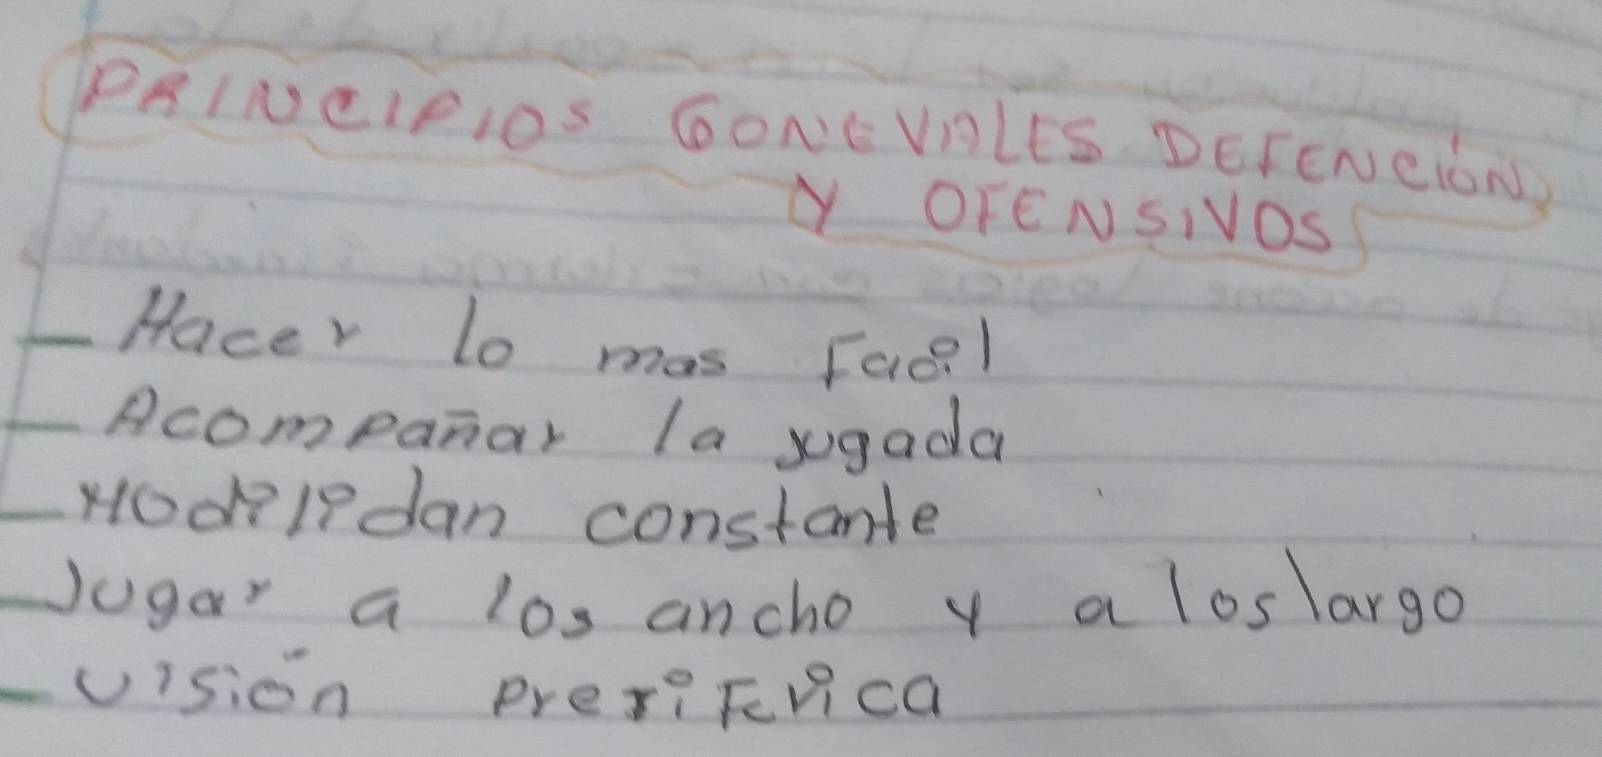 PRINCIPIOS GONEVALES DEFENCIÓN
Y OFENSIVOS
- Hacer lo mas Facil
- Acompañar la jugada
- Modilidan constante
- Jugar a los ancho y a los largo
- visión preriFerica